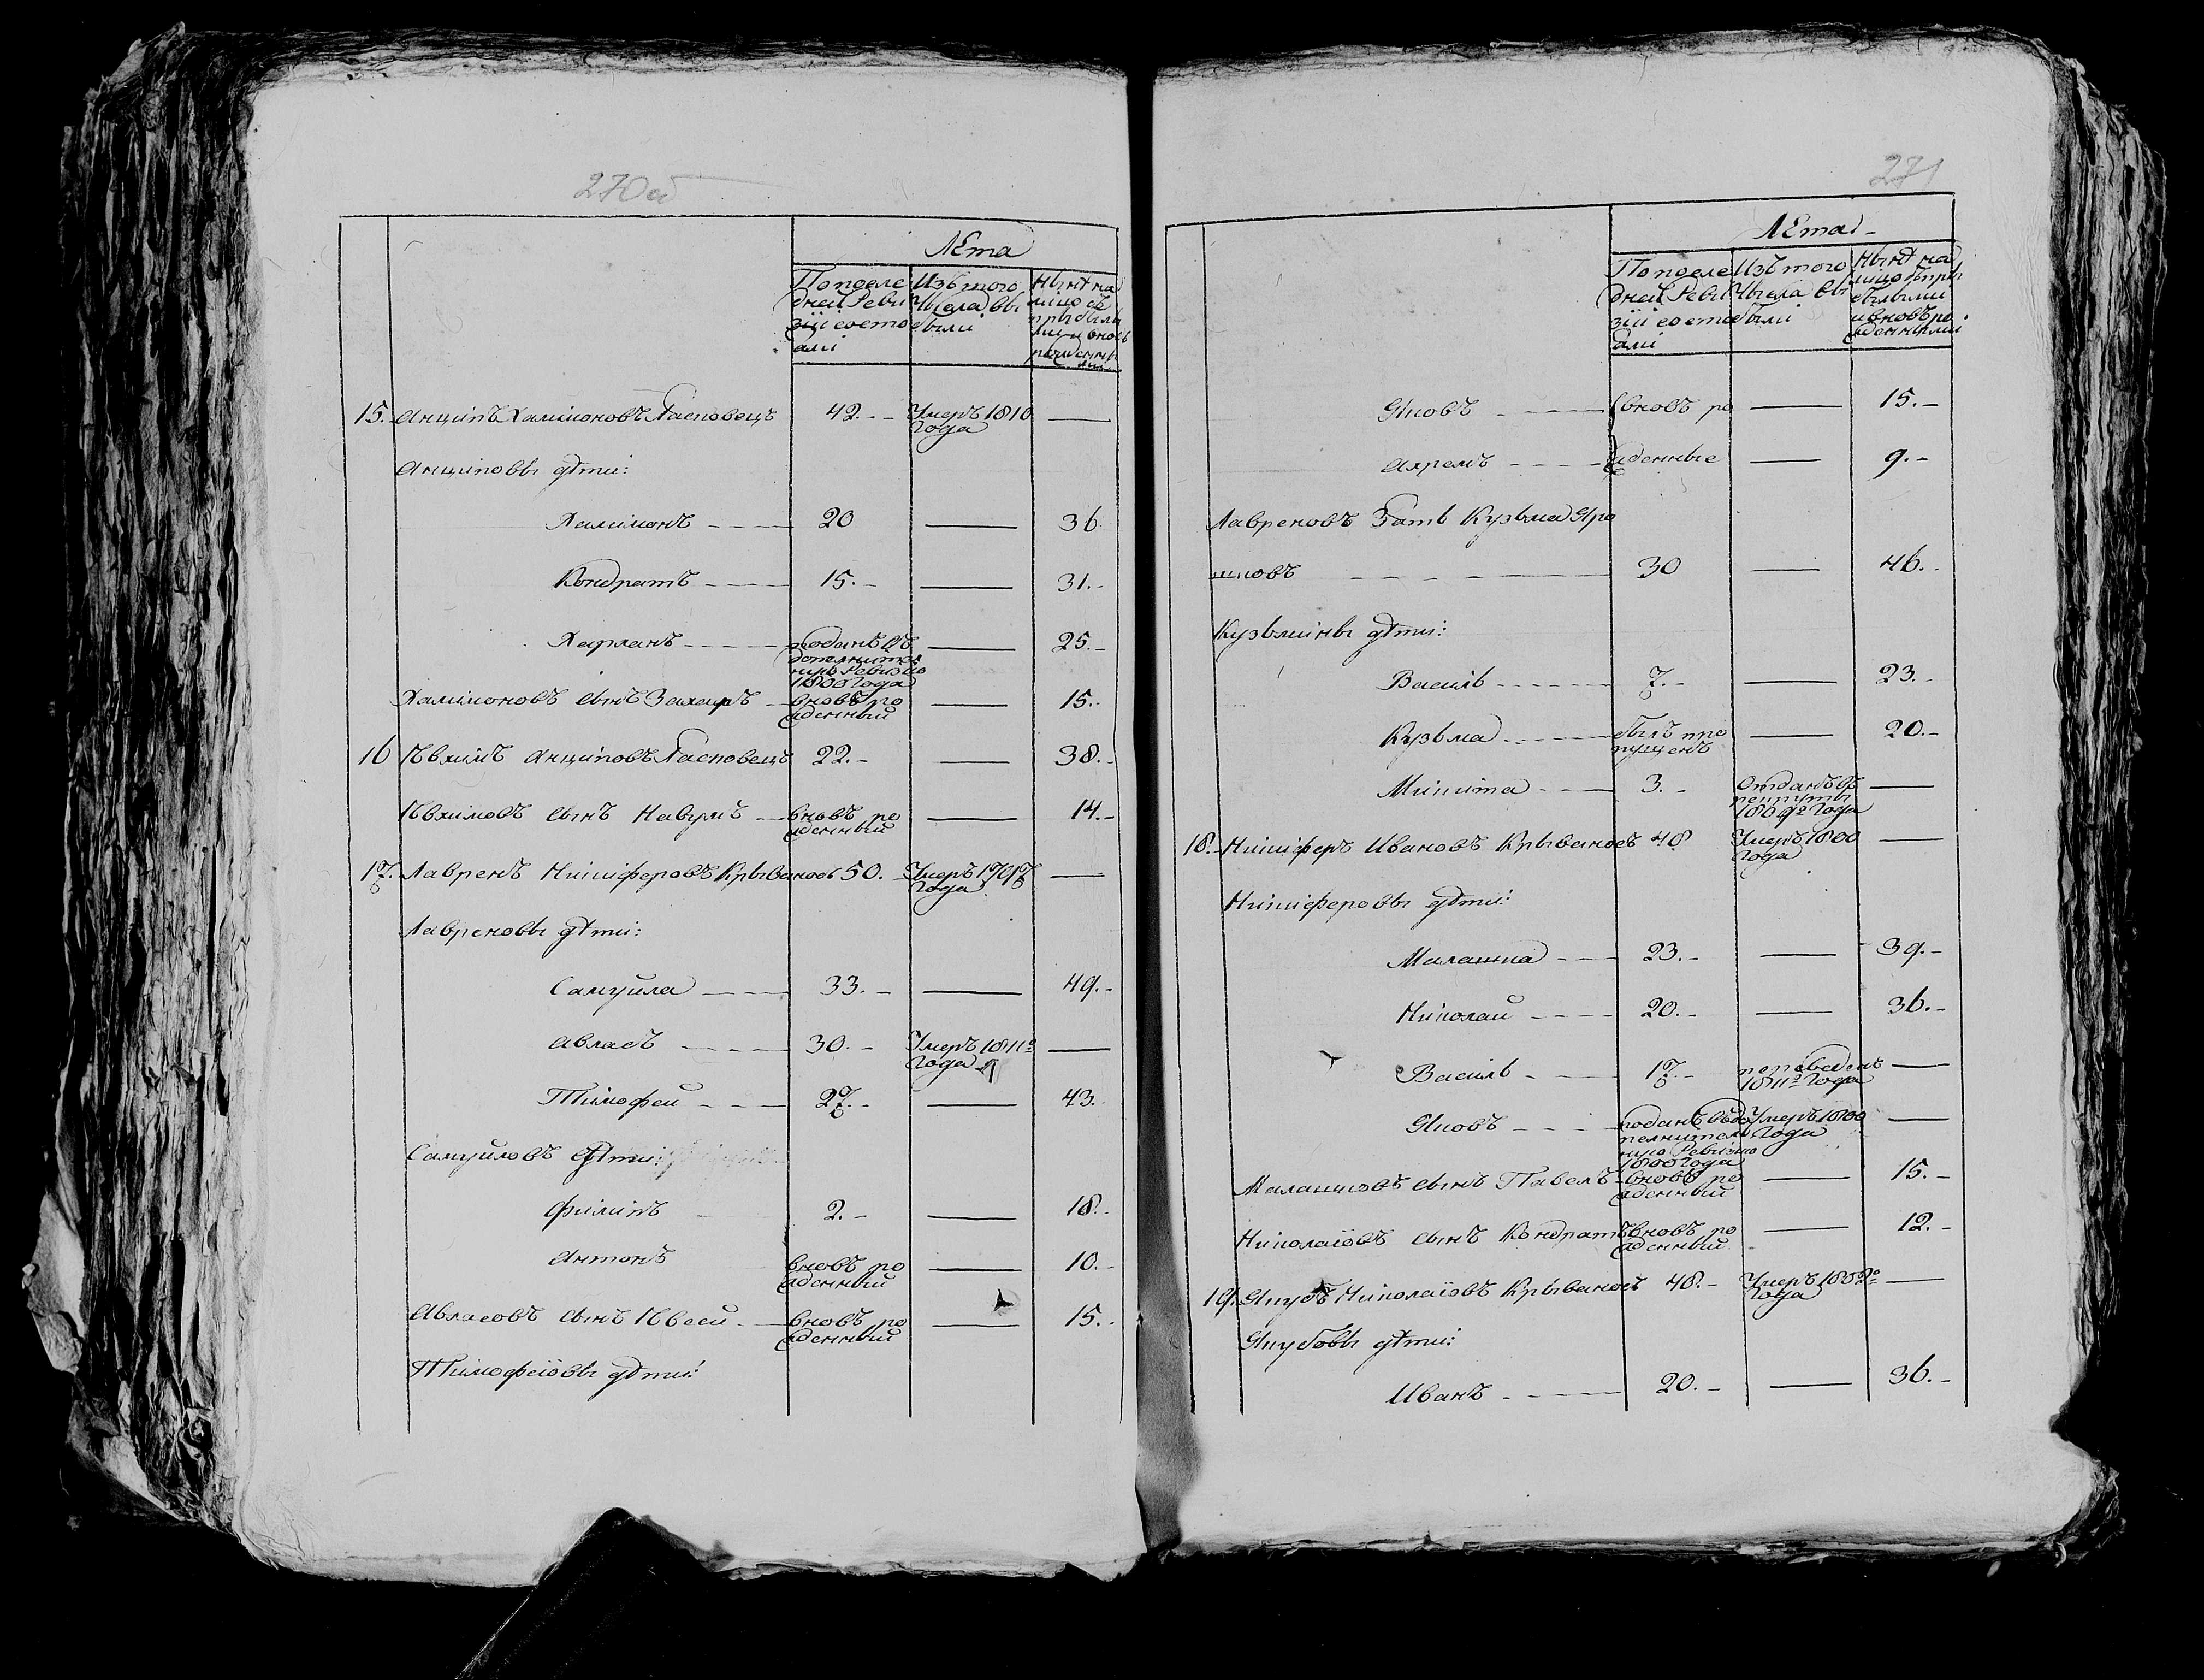 270об
Лѣта
По последней Ревизіи состояли
Изъ того числа выбыли
Нынѣ на лицо съ прибылыми и вновь рожденными
15. Анципъ Халимоновъ 42. Умеръ 1810 —
года
Анциповы дѣти:
Халимонъ 20 — 36
Кондратъ 15. — 31.
Харланъ поданъ въ — 25.
дополнитель
ную Ревизію
1800 года
Халимоновъ сынъ Захаръ вновь ро — 15.
жденный
16 Ѣвхимъ Анциповъ 22. — 38.
Ѣвхимовъ сынъ Навумъ вновь ро — 14.
жденный
17. Лавренъ Никиферовъ Крывонос 50. Умеръ 1797 —
года
Лавреновы дѣти:
Самуйла 33. — 49.
Авласъ 30. Умеръ 1811го —
года
Тимофей 27. — 43.
Самуйловъ дѣти:
Филипъ 2. — 18.
Антонъ вновь ро — 10.
жденный
Авласовъ сынъ Ѣвсей вновь ро — 15.
жденный
Тимофеіовы дѣти:
271
Лѣта
По последней Ревизіи состояли
Изъ того числа выбыли
Нынѣ на лицо съ прибылыми и вновь рожденными
Яковъ вновь ро — 15.
Ахремъ жденные — 9.
Лавреновъ Зать Кузьма Яро
шковъ 30 — 46.
Кузьмины дѣти:
Василь 7. — 23.
Кузьма былъ про — 20.
пущенъ
Микита 3. Отданъ въ —
рекруты
1809го года
18. Никиферъ Ивановъ Крывонос 48 Умеръ 1800 —
года
Никиферовы дѣти:
Малашка 23. — 39.
Николай 20. — 36.
Василь 17. —
1811го года
Яковъ поданъ въ до Умеръ 1800 —
полнитель года
ную Ревизію
1800 года
Малашковъ сынъ Павелъ вновь ро — 15.
жденный
Николаіовъ сынъ Кондратъ вновь ро — 12.
жденный
19. Якубъ Николаіовъ Крывонос 48. Умеръ 1802го —
года
Якубовы дѣти:
Иванъ 20. — 36.